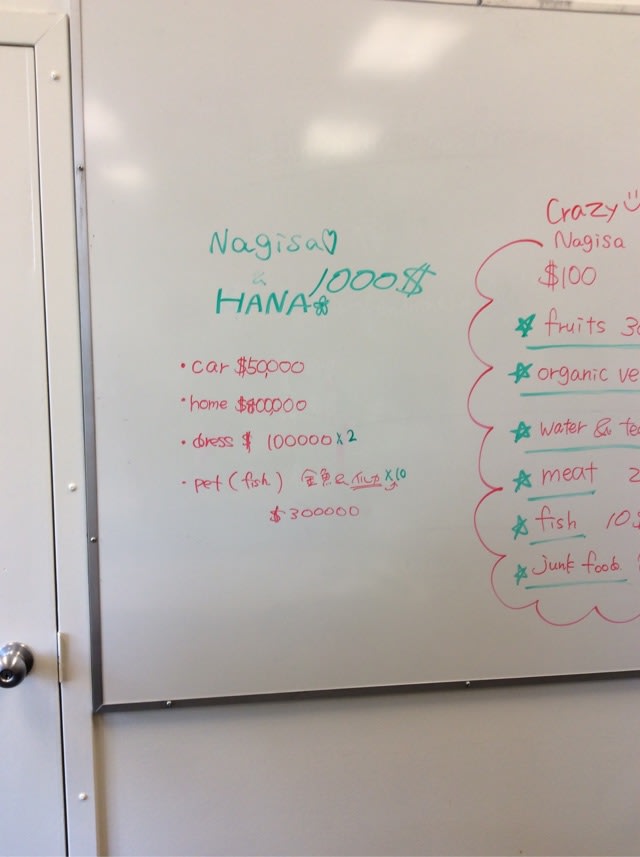 Nagisa♡
&
HANA 1000$
• car $50,000
• home $800,000
• dress $ 100000 x 2
• pet (fish) 金魚& イルカ x10
$300000
Crazy
Nagisa
$100
☆ fruits
☆ organic
☆ water &
☆ meat
☆ fish 10$
☆ junk food